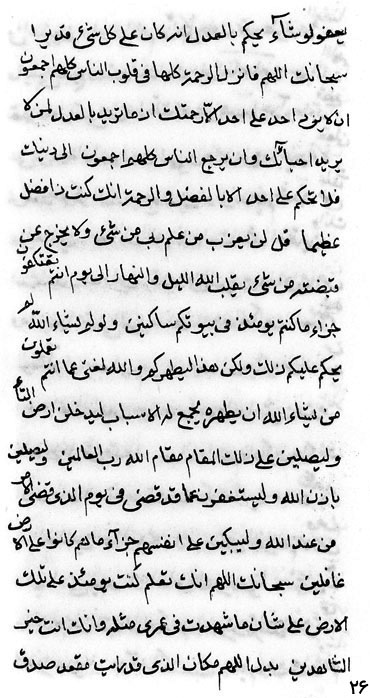 يعفو لو يشآء يحكم بالعدل انه كان على كل شئ قديرا
سبحانك اللهم فانزل الرحمة كلها فى قلوب الناس كلهم اجمعون
ان لا يرد احد على احد الا رحمتك ان ما تريد بالعدل لمن لا
يريد احبائك وان يرجع الناس كلهم اجمعون الى دينك
فلا تحكم على احد الا بالفضل والرحمة انك كنت ذا فضل
عظيما قل لن يعزب من علم ربى من شئ ولا يخرج عن
قبضته من شئ يقلب الله الليل والنهار الى يوم انتم تمتكفون
جزاء ما كنتم يومئذ فى بيوتكم ساكنين ولو لم يشاء الله لم
يحكم عليكم ذلك ولكن هذا ليطهركم والله لغنى عما انتم تعملون
من يشاء الله ان يطهره يجمع له الاسباب ليدخلن ارض التاء
وليصلين على ذلك المقام مقام الله رب العالمين وليصلين
باذن الله وليستغفرن عما قد قضى فى يوم الذى قضى الامر
من عند الله وليبكين على انفسهم جزآء ما هم كانوا على الارض
غافلين سبحانك اللهم انك تعلم كنت يومئذ على تلك
الارض على شان ما شهدت فى عمرى مثله وانك انت خير
الشاهدين بدل اللهم مكان الذى قد رايت مقعد صدق
٢٦